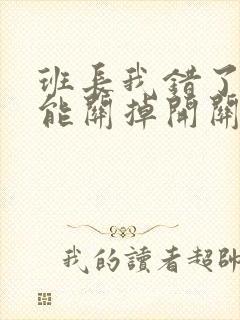 班长我错了
能關掉開關
我的讀者超帥